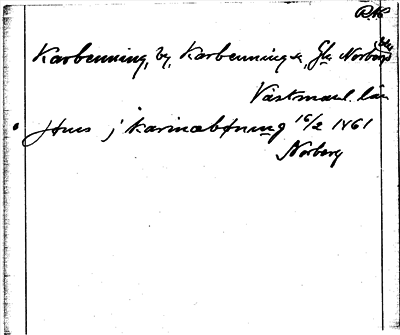 RA
Karbenning, by, Karbennings, Gla Norbergs
Västmanl. län
Hus j karinabtnıng 16/2 1461
Norberg